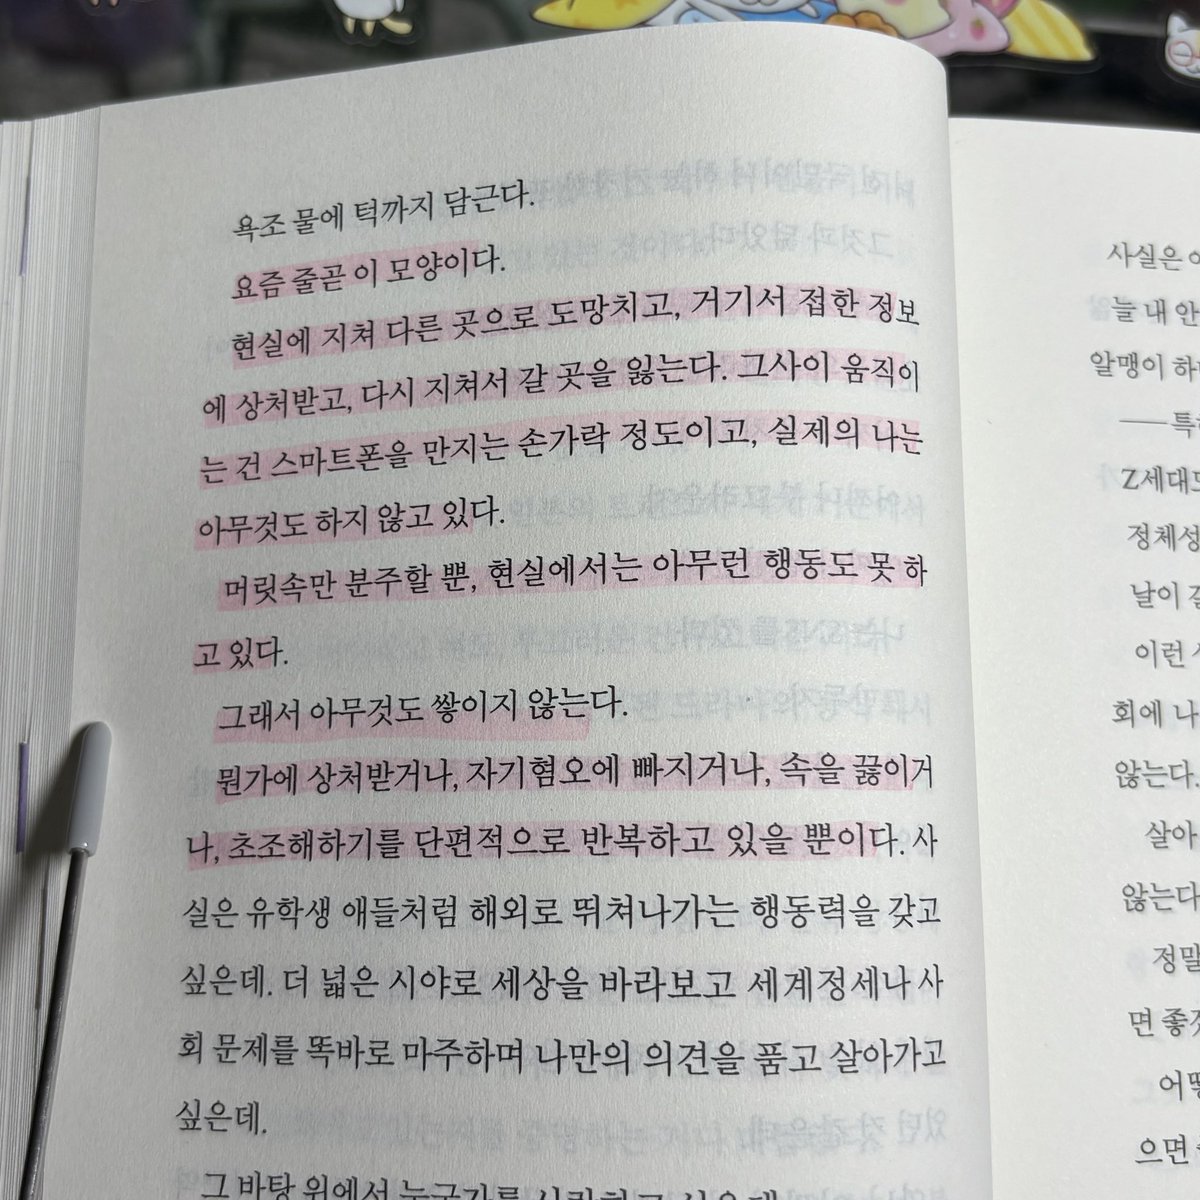 욕조 물에 턱까지 담근다.
요즘 줄곧 이 모양이다.
현실에 지쳐 다른 곳으로 도망치고, 거기서 접한 정보
에 상처받고, 다시 지쳐서 갈 곳을 잃는다. 그사이 움직이
는 건 스마트폰을 만지는 손가락 정도이고, 실제의 나는
아무것도 하지 않고 있다.
머릿속만 분주할 뿐, 현실에서는 아무런 행동도 못 하
고 있다.
그래서 아무것도 쌓이지 않는다.
뭔가에 상처받거나, 자기혐오에 빠지거나, 속을 끓이거
나, 초조해하기를 단편적으로 반복하고 있을 뿐이다. 사
실은 유학생 애들처럼 해외로 뛰쳐나가는 행동력을 갖고
싶은데. 더 넓은 시야로 세상을 바라보고 세계정세나 사
회 문제를 똑바로 마주하며 나만의 의견을 품고 살아가고
싶은데.
그 바탕 위에서 누군가를
사실은
늘 내 안
알맹이
―특
Z세대
정체성
날이
이런
회에 나
않는다.
살아
않는다
정말
면
어떻
으면